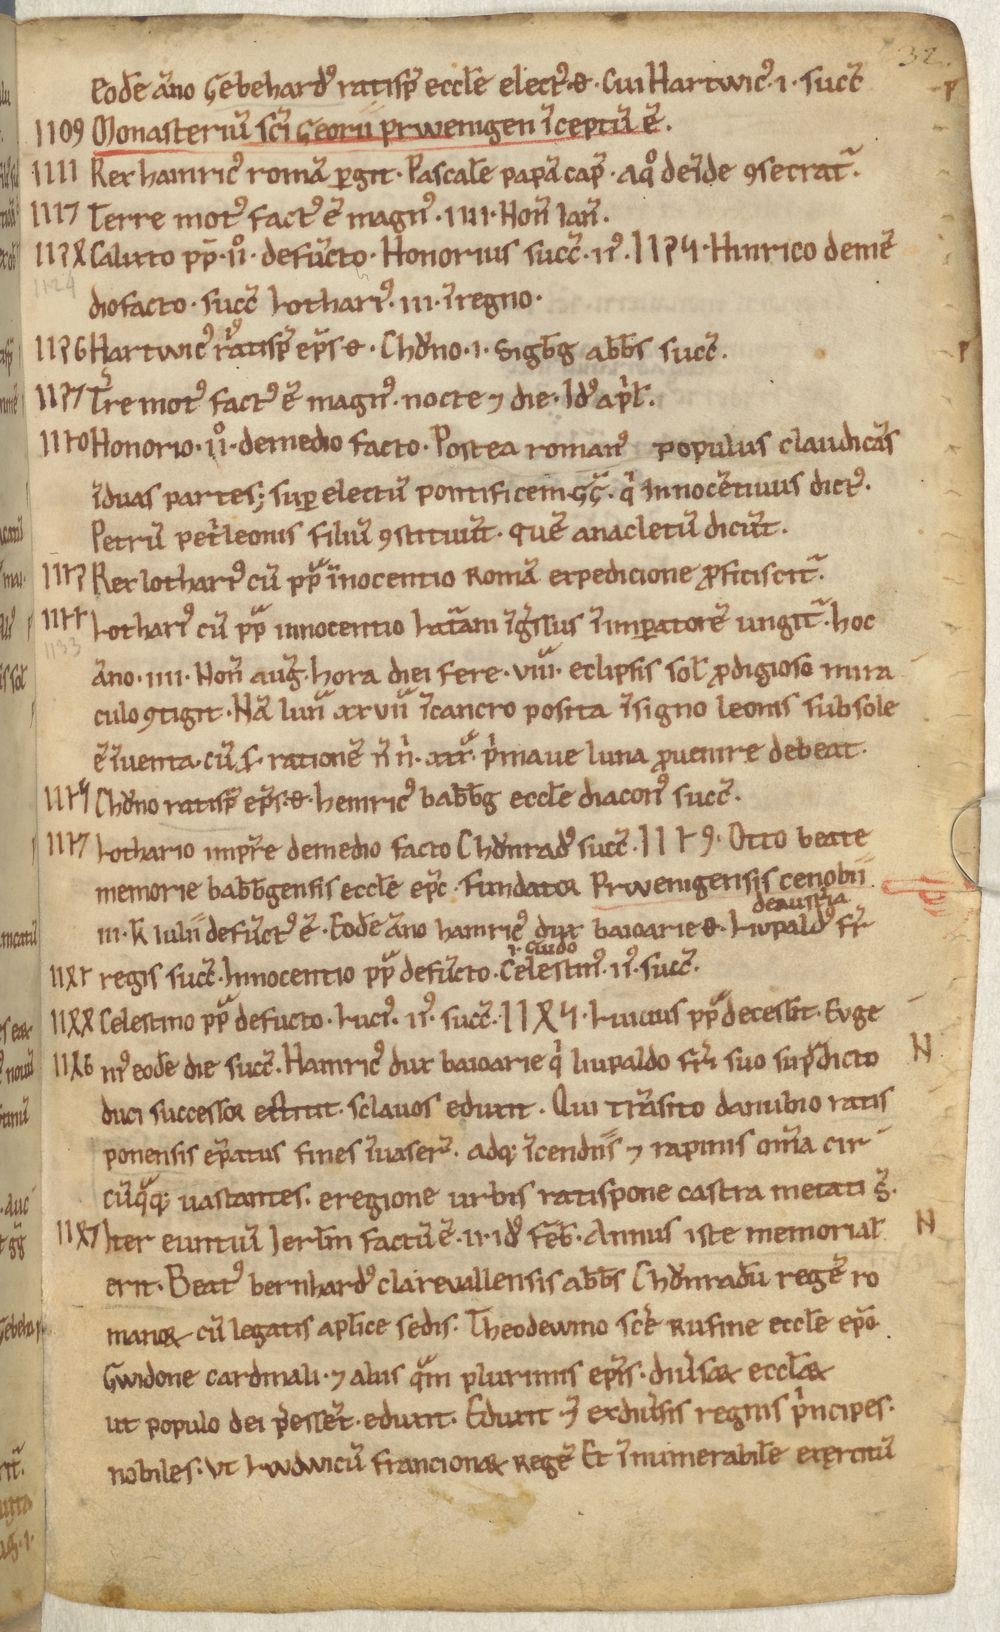 32.
eode āno Gebehard⁹ ratisp̄ eccle elect⁹ ē. Cui Hartwic⁹. i. succ̄
1109 Monasteriū sci Georii prweningen īceptū ē.
1111 Rex hainric⁹ romā pergit. Pascale papā cap̄. a quo deīde 9secrat̄.
1117 Terre mot⁹ fact⁹ ē magn⁹. iiii. Non Ian.
112X Calixto pp̄. ii°. defūcto. Honorius succ̄. ii⁹. 1125. Hinrico deme
1124
dio facto. succ̄ Lothari⁹. iii. ī regno.
1126 Hartwic⁹ ratisp̄ ep̄s ē. Chōno. i. Sigb̄g abb̄s succ̄.
1127 T̄re mot⁹ fact⁹ ē magn⁹. nocte ⁊ die. Id⁹ ap̄l.
1130 Honorio. ii°. demedio facto. Postea roman⁹ populus claudicās
ī duas partes; sup electū pontificem qi Innocētiuus dict⁹.
Petrū pet̄leonis filiū 9stituūt. quē anacletū dicūt.
1132 Rex lothari⁹ cū pp̄ īnocentio Romā expedicione proficiscit̄.
1133 Lothari⁹ cū pp̄ innocentio Lat̄am īḡssus īmperatorē ungit̄. hoc
1133
āno. iiii. Non auḡ. hora diei fere. viii. eclipsis sol̄ prodigioso mira
culo 9tigit. Nā lun̄ xxvii ī cancro posita ī signo leonis sub sole
ē īventa. cū rationē n̄ n̄. xxx. p̄maue luna provenire debeat.
1135 Chōno ratisp̄ ep̄s ē. heinric⁹ babb̄g eccle diacon⁹ succ̄.
1137 Lothario imp̄re demedio facto Chōnrad⁹ succ̄. 1139. Otto beate
memorie babb̄gensis eccle ep̄c. fundator Prweningensis cenobii
de austria
iii. K̄ iulii defūct⁹ ē. Eode āno hainric⁹ dux baioarie ē. Liupald⁹ fr̄
i. Guido
11X3 regis succ̄. Innocentio pp̄ defūcto. Celestin⁹. ii⁹. succ̄.
11XX Celestino pp̄ defucto. Luci⁹. ii⁹. succ̄. 11X5. Lucius pp̄ decessit. Euge
11X6 ni⁹ eode die succ̄. Hainric⁹ dux baioarie qi liupaldo fr̄i suo sup̄dicto N
duci successor extitit. sclavos eduxit. Qui trāsito danubio ratis
ponensis ep̄atus fines īvaser⁹. adq; īcendiis ⁊ rapinis om̄ia cir
cūquaq; vastantes. e regione urbis ratispone castra metati s̄.
11X7 Iter euntiū Jerl̄m factū ē. ii. id⁹ feb̄. Annus iste memorial̄ N
erit. Beat⁹ bernhard⁹ clarevallensis abb̄s Chōnradū regē ro
manoꝝ cū legatis apl̄ice sedis. Theodewino scē Rufine eccle ep̄o.
Gwidone cardinali. ⁊ aliis q̄m plurimis ep̄is. div̄saꝝ eccl̄aꝝ
ut populo dei p̄essēt. eduxit. Eduxit. ⁊ ex div̄sis regnis p̄ncipes.
nobiles. ut Lwdwicū francionaꝝ Regē Et īnumerabile exercitū